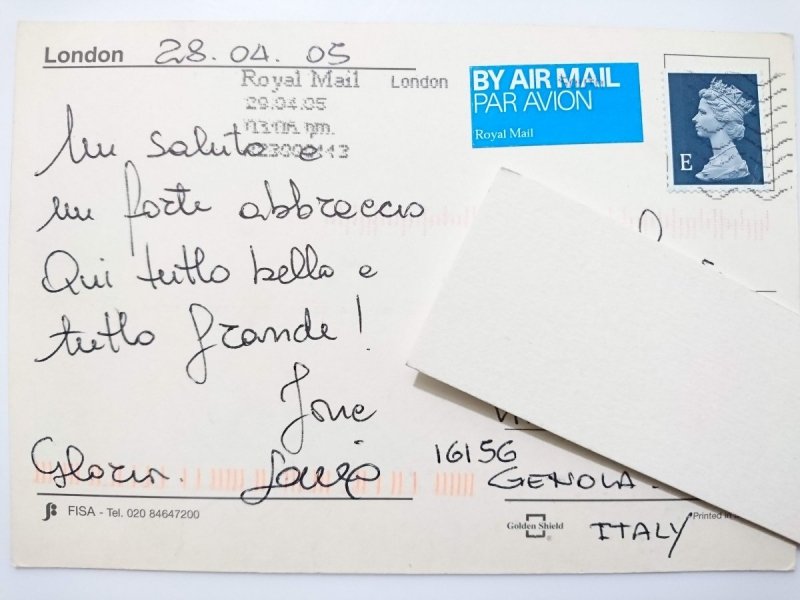 London 28.04.05
Royal Mail London
29.04.05
BY AIR MAIL
PAR AVION
Royal Mail
E
Un saluto e
un forte abbraccio
Qui tutto bello e
tutto grande!
16156
GENOVA
ITALY
FISA - Tel. 020 84647200
Golden Shield
Printed in